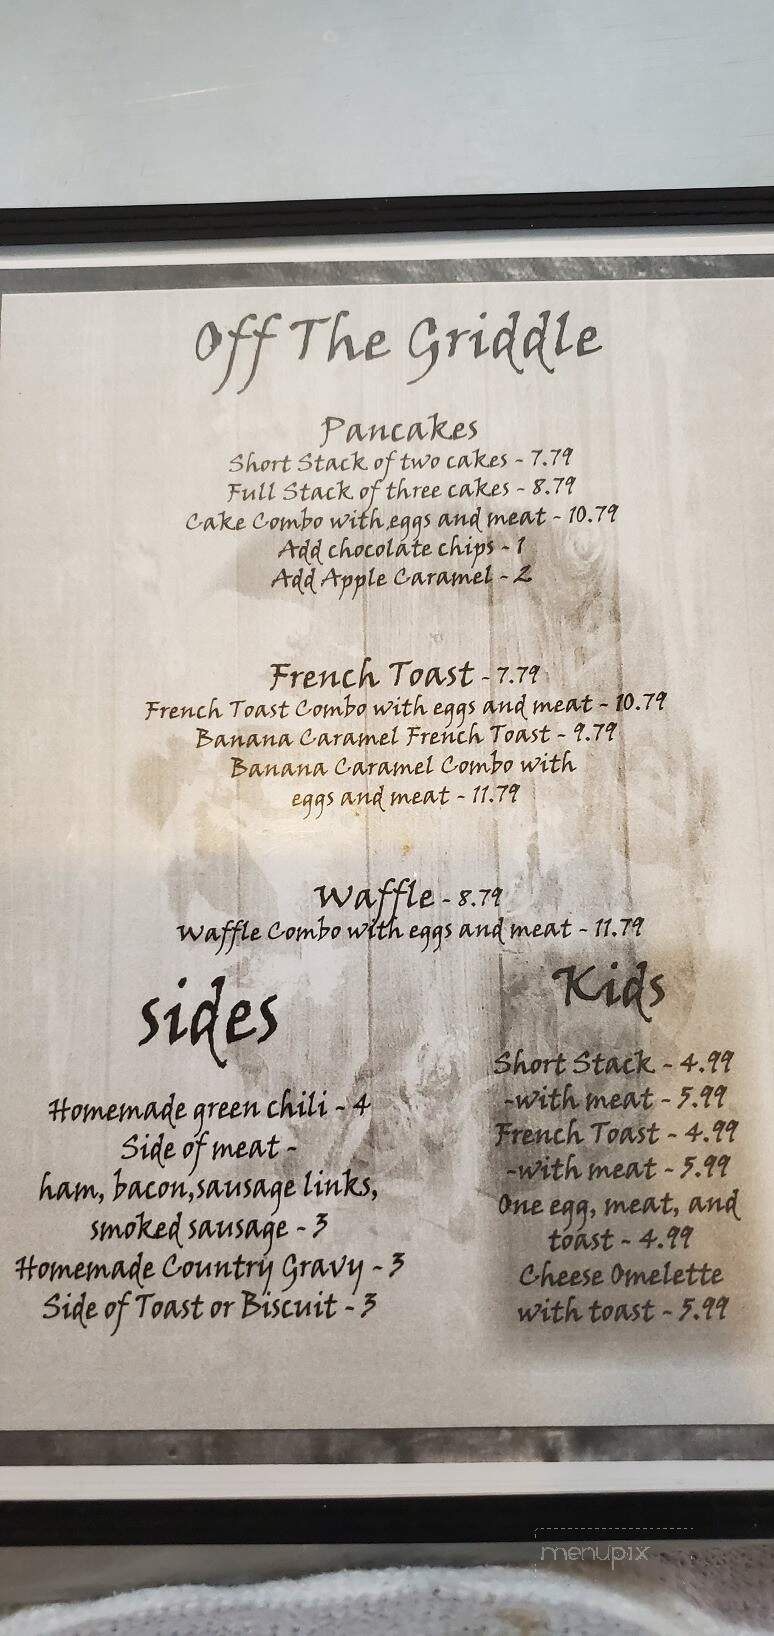 Off The Griddle
Pancakes
Short Stack of two cakes - 7.79
Full Stack of three cakes - 8.79
Cake Combo with eggs and meat - 10.79
Add chocolate chips - 1
Add Apple Caramel - 2
French Toast - 7.79
French Toast Combo with eggs and meat - 10.79
Banana Caramel French Toast - 9.79
Banana Caramel Combo with
eggs and meat - 11.79
Waffle - 8.79
Waffle Combo with eggs and meat - 11.79
sides
Homemade green chili - 4
Side of meat -
ham, bacon,sausage links,
smoked sausage - 3
Homemade Country Gravy - 3
Side of Toast or Biscuit - 3
Kids
Short Stack - 4.99
-with meat - 5.99
French Toast - 4.99
-with meat - 5.99
One egg, meat, and
toast - 4.99
Cheese Omelette
with toast - 5.99
menupix